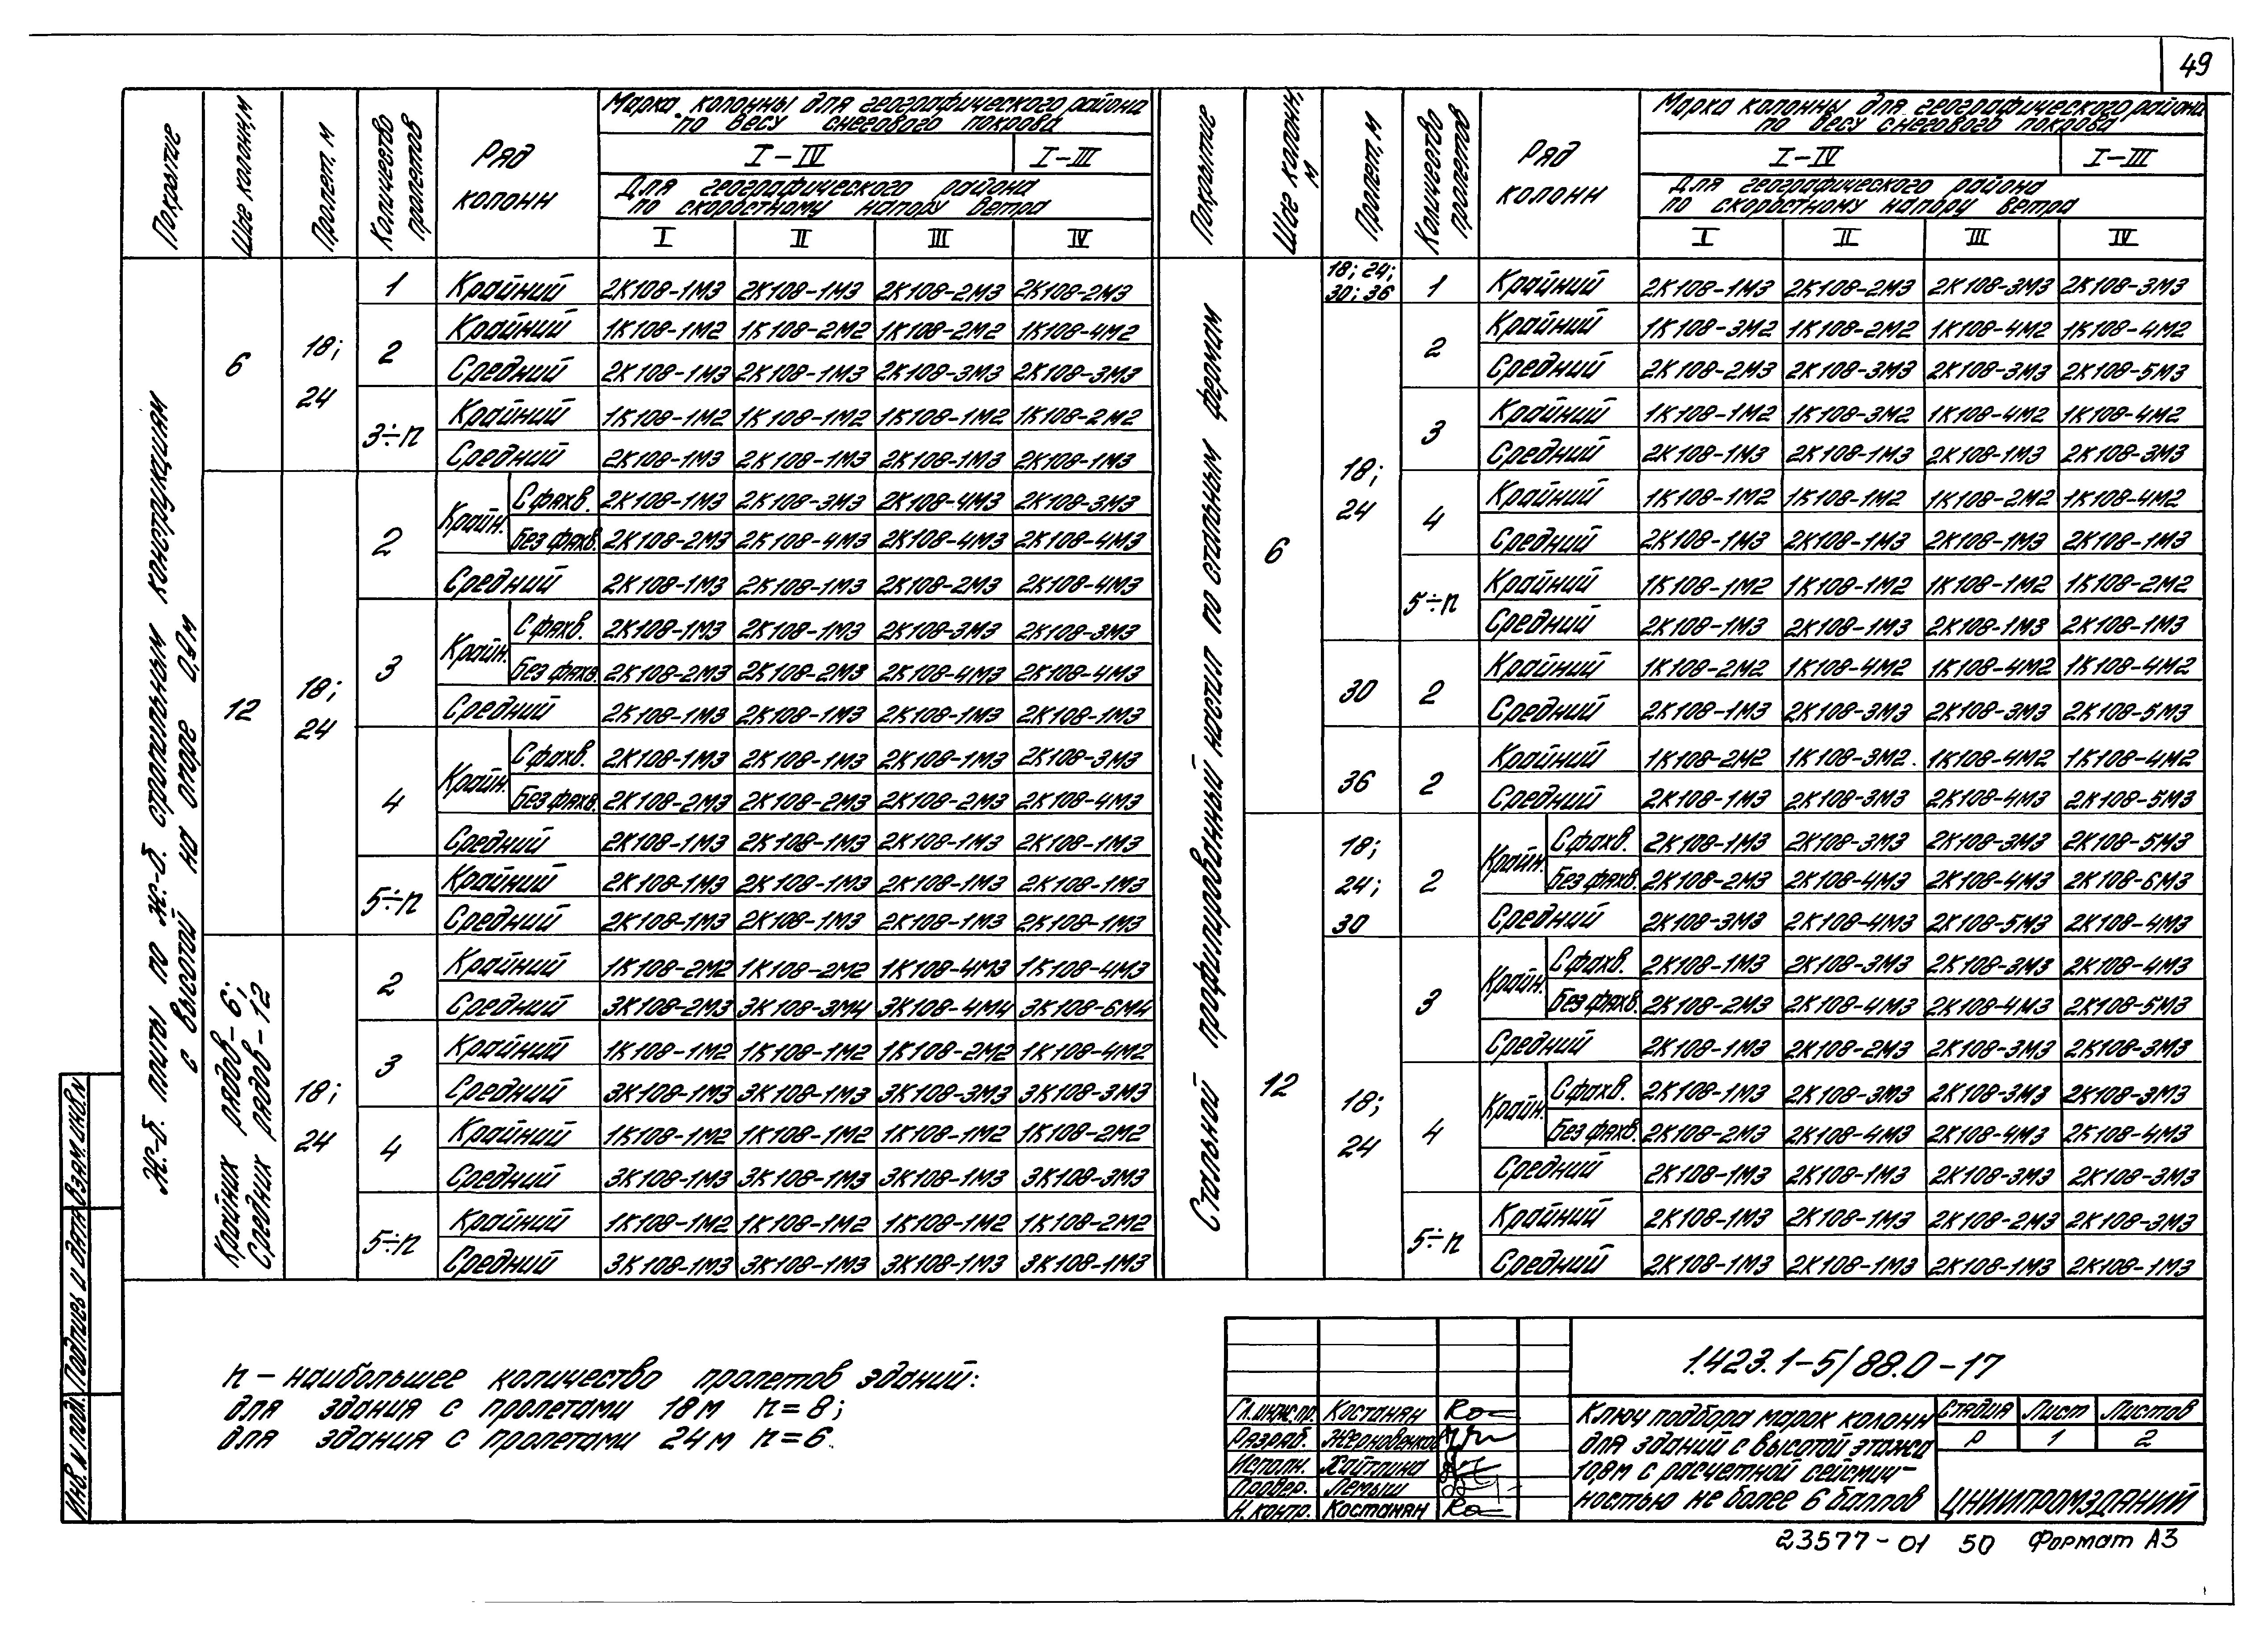 49
Покрытие
Шаг колонн, м
Пролет, м
Количество пролетов
Ряд колонн
Марка колонны для географического района по весу снегового покрова
I-IV I-III
Для географического района по скоростному напору ветра
I II III IV
Ж.-б. плиты по ж.-б. стропильным конструкциям с высотой на опоре 0,9 м
6
18; 24
1 Крайний 2К108-1М3 2К108-1М3 2К108-2М3 2К108-2М3
2 Крайний 1К108-1М2 1К108-2М2 1К108-2М2 1К108-4М2
Средний 2К108-1М3 2К108-1М3 2К108-3М3 2К108-3М3
3÷п Крайний 1К108-1М2 1К108-1М2 1К108-1М2 1К108-2М2
Средний 2К108-1М3 2К108-1М3 2К108-1М3 2К108-1М3
12
18; 24
2 Крайн. С фахв. 2К108-1М3 2К108-3М3 2К108-4М3 2К108-3М3
Без фахв. 2К108-2М3 2К108-4М3 2К108-4М3 2К108-4М3
Средний 2К108-1М3 2К108-1М3 2К108-2М3 2К108-4М3
3 Крайн. С фахв. 2К108-1М3 2К108-1М3 2К108-3М3 2К108-3М3
Без фахв. 2К108-2М3 2К108-2М3 2К108-4М3 2К108-4М3
Средний 2К108-1М3 2К108-1М3 2К108-1М3 2К108-1М3
4 Крайн. С фахв. 2К108-1М3 2К108-1М3 2К108-1М3 2К108-3М3
Без фахв. 2К108-2М3 2К108-2М3 2К108-2М3 2К108-4М3
Средний 2К108-1М3 2К108-1М3 2К108-1М3 2К108-1М3
5÷п Крайний 2К108-1М3 2К108-1М3 2К108-1М3 2К108-1М3
Средний 2К108-1М3 2К108-1М3 2К108-1М3 2К108-1М3
Крайних рядов-6; Средних рядов-12
18; 24
2 Крайний 1К108-2М2 1К108-2М2 1К108-4М3 1К108-4М3
Средний 3К108-2М3 3К108-3М4 3К108-4М4 3К108-6М4
3 Крайний 1К108-1М2 1К108-1М2 1К108-2М2 1К108-4М2
Средний 3К108-1М3 3К108-1М3 3К108-3М3 3К108-3М3
4 Крайний 1К108-1М2 1К108-1М2 1К108-1М2 1К108-2М2
Средний 3К108-1М3 3К108-1М3 3К108-1М3 3К108-3М3
5÷п Крайний 1К108-1М2 1К108-1М2 1К108-1М2 1К108-2М2
Средний 3К108-1М3 3К108-1М3 3К108-1М3 3К108-1М3
Покрытие
Шаг колонн, м
Пролет, м
Количество пролетов
Ряд колонн
Марка колонны для географического района по весу снегового покрова
I-IV I-III
Для географического района по скоростному напору ветра
I II III IV
Стальной профилированный настил по стальным фермам
6
18; 24; 30; 36
1 Крайний 2К108-1М3 2К108-2М3 2К108-3М3 2К108-3М3
18; 24
2 Крайний 1К108-3М2 1К108-2М2 1К108-4М2 1К108-4М2
Средний 2К108-2М3 2К108-3М3 2К108-3М3 2К108-5М3
3 Крайний 1К108-1М2 1К108-3М2 1К108-4М2 1К108-4М2
Средний 2К108-1М3 2К108-1М3 2К108-1М3 2К108-3М3
4 Крайний 1К108-1М2 1К108-1М2 1К108-2М2 1К108-4М2
Средний 2К108-1М3 2К108-1М3 2К108-1М3 2К108-1М3
5÷п Крайний 1К108-1М2 1К108-1М2 1К108-1М2 1К108-2М2
Средний 2К108-1М3 2К108-1М3 2К108-1М3 2К108-1М3
30 2 Крайний 1К108-2М2 1К108-4М2 1К108-4М2 1К108-4М2
Средний 2К108-1М3 2К108-3М3 2К108-3М3 2К108-5М3
36 2 Крайний 1К108-2М2 1К108-3М2 1К108-4М2 1К108-4М2
Средний 2К108-1М3 2К108-3М3 2К108-4М3 2К108-5М3
12
18; 24; 30
2 Крайн. С фахв. 2К108-1М3 2К108-3М3 2К108-3М3 2К108-5М3
Без фахв. 2К108-2М3 2К108-4М3 2К108-4М3 2К108-6М3
Средний 2К108-3М3 2К108-4М3 2К108-5М3 2К108-4М3
18; 24
3 Крайн. С фахв. 2К108-1М3 2К108-3М3 2К108-3М3 2К108-4М3
Без фахв. 2К108-2М3 2К108-4М3 2К108-4М3 2К108-5М3
Средний 2К108-1М3 2К108-2М3 2К108-3М3 2К108-3М3
4 Крайн. С фахв. 2К108-1М3 2К108-3М3 2К108-3М3 2К108-3М3
Без фахв. 2К108-2М3 2К108-4М3 2К108-4М3 2К108-4М3
Средний 2К108-1М3 2К108-1М3 2К108-3М3 2К108-3М3
5÷п Крайний 2К108-1М3 2К108-1М3 2К108-2М3 2К108-3М3
Средний 2К108-1М3 2К108-1М3 2К108-1М3 2К108-1М3
п - наибольшее количество пролетов зданий:
для здания с пролетами 18м п=8;
для здания с пролетами 24м п=6.
Инв. и подл. Подпись и дата Взам. инв. №
1.423.1-5/88.0-17
Гл. инж. пр. Костанян
Разраб. Жерновенков
Исполн. Хайтлина
Провер. Лемыш
Н. контр. Костанян
Ключ подбора марок колонн
для зданий с высотой этажа
10,8м с расчетной сейсмич-
ностью не более 6 баллов
Стадия Лист Листов
Р 1 2
ЦНИИПРОМЗДАНИЙ
23577-01 50 Формат А3